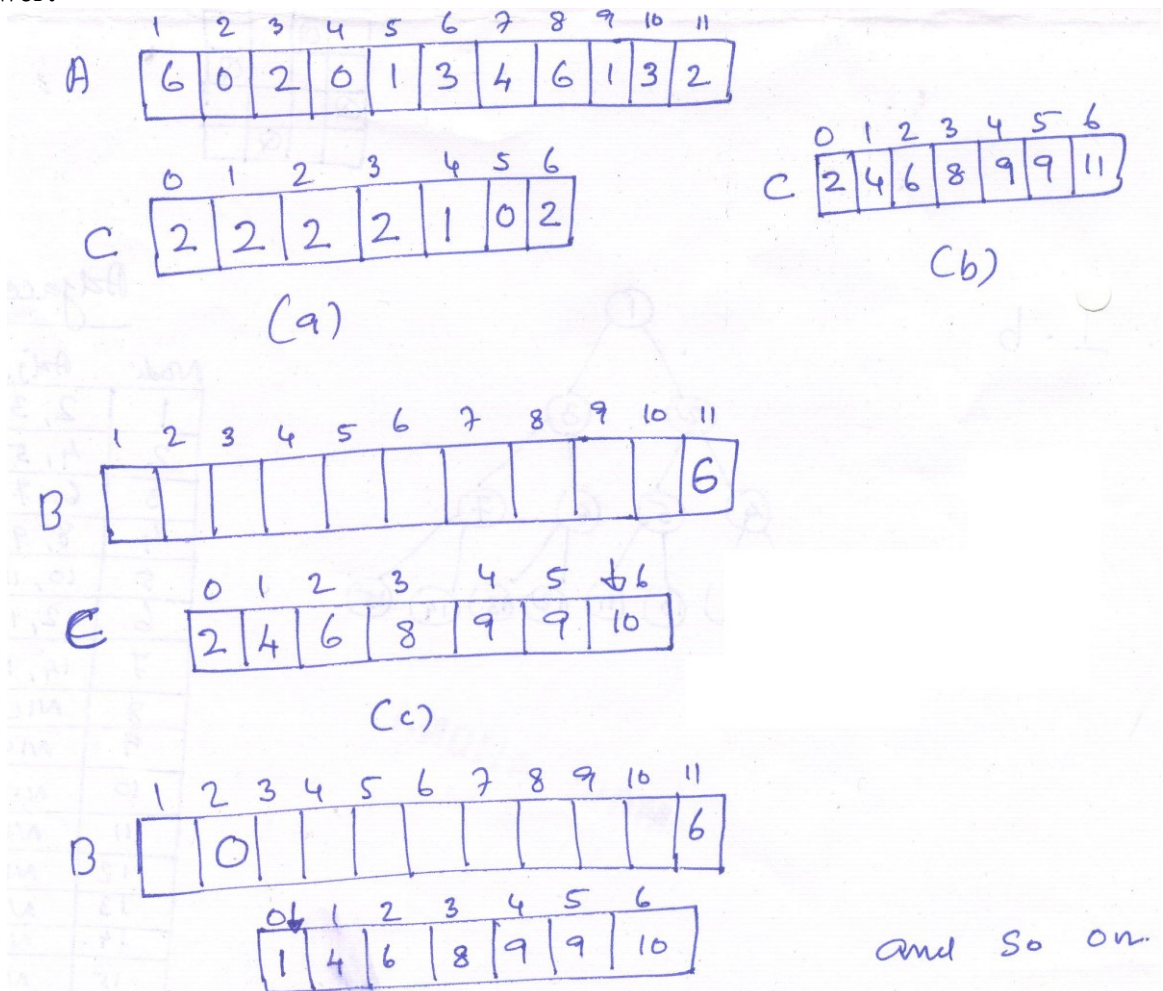 1 2 3 4 5 6 7 8 9 10 11
A 6 0 2 0 1 3 4 6 1 3 2
0 1 2 3 4 5 6
C 2 2 2 2 1 0 2
(a)
0 1 2 3 4 5 6
C 2 4 6 8 9 9 11
(b)
1 2 3 4 5 6 7 8 9 10 11
B 6
0 1 2 3 4 5 ↓ 6
C 2 4 6 8 9 9 10
(c)
1 2 3 4 5 6 7 8 9 10 11
B 0 6
0 ↓ 1 2 3 4 5 6
1 4 6 8 9 9 10
and so on.